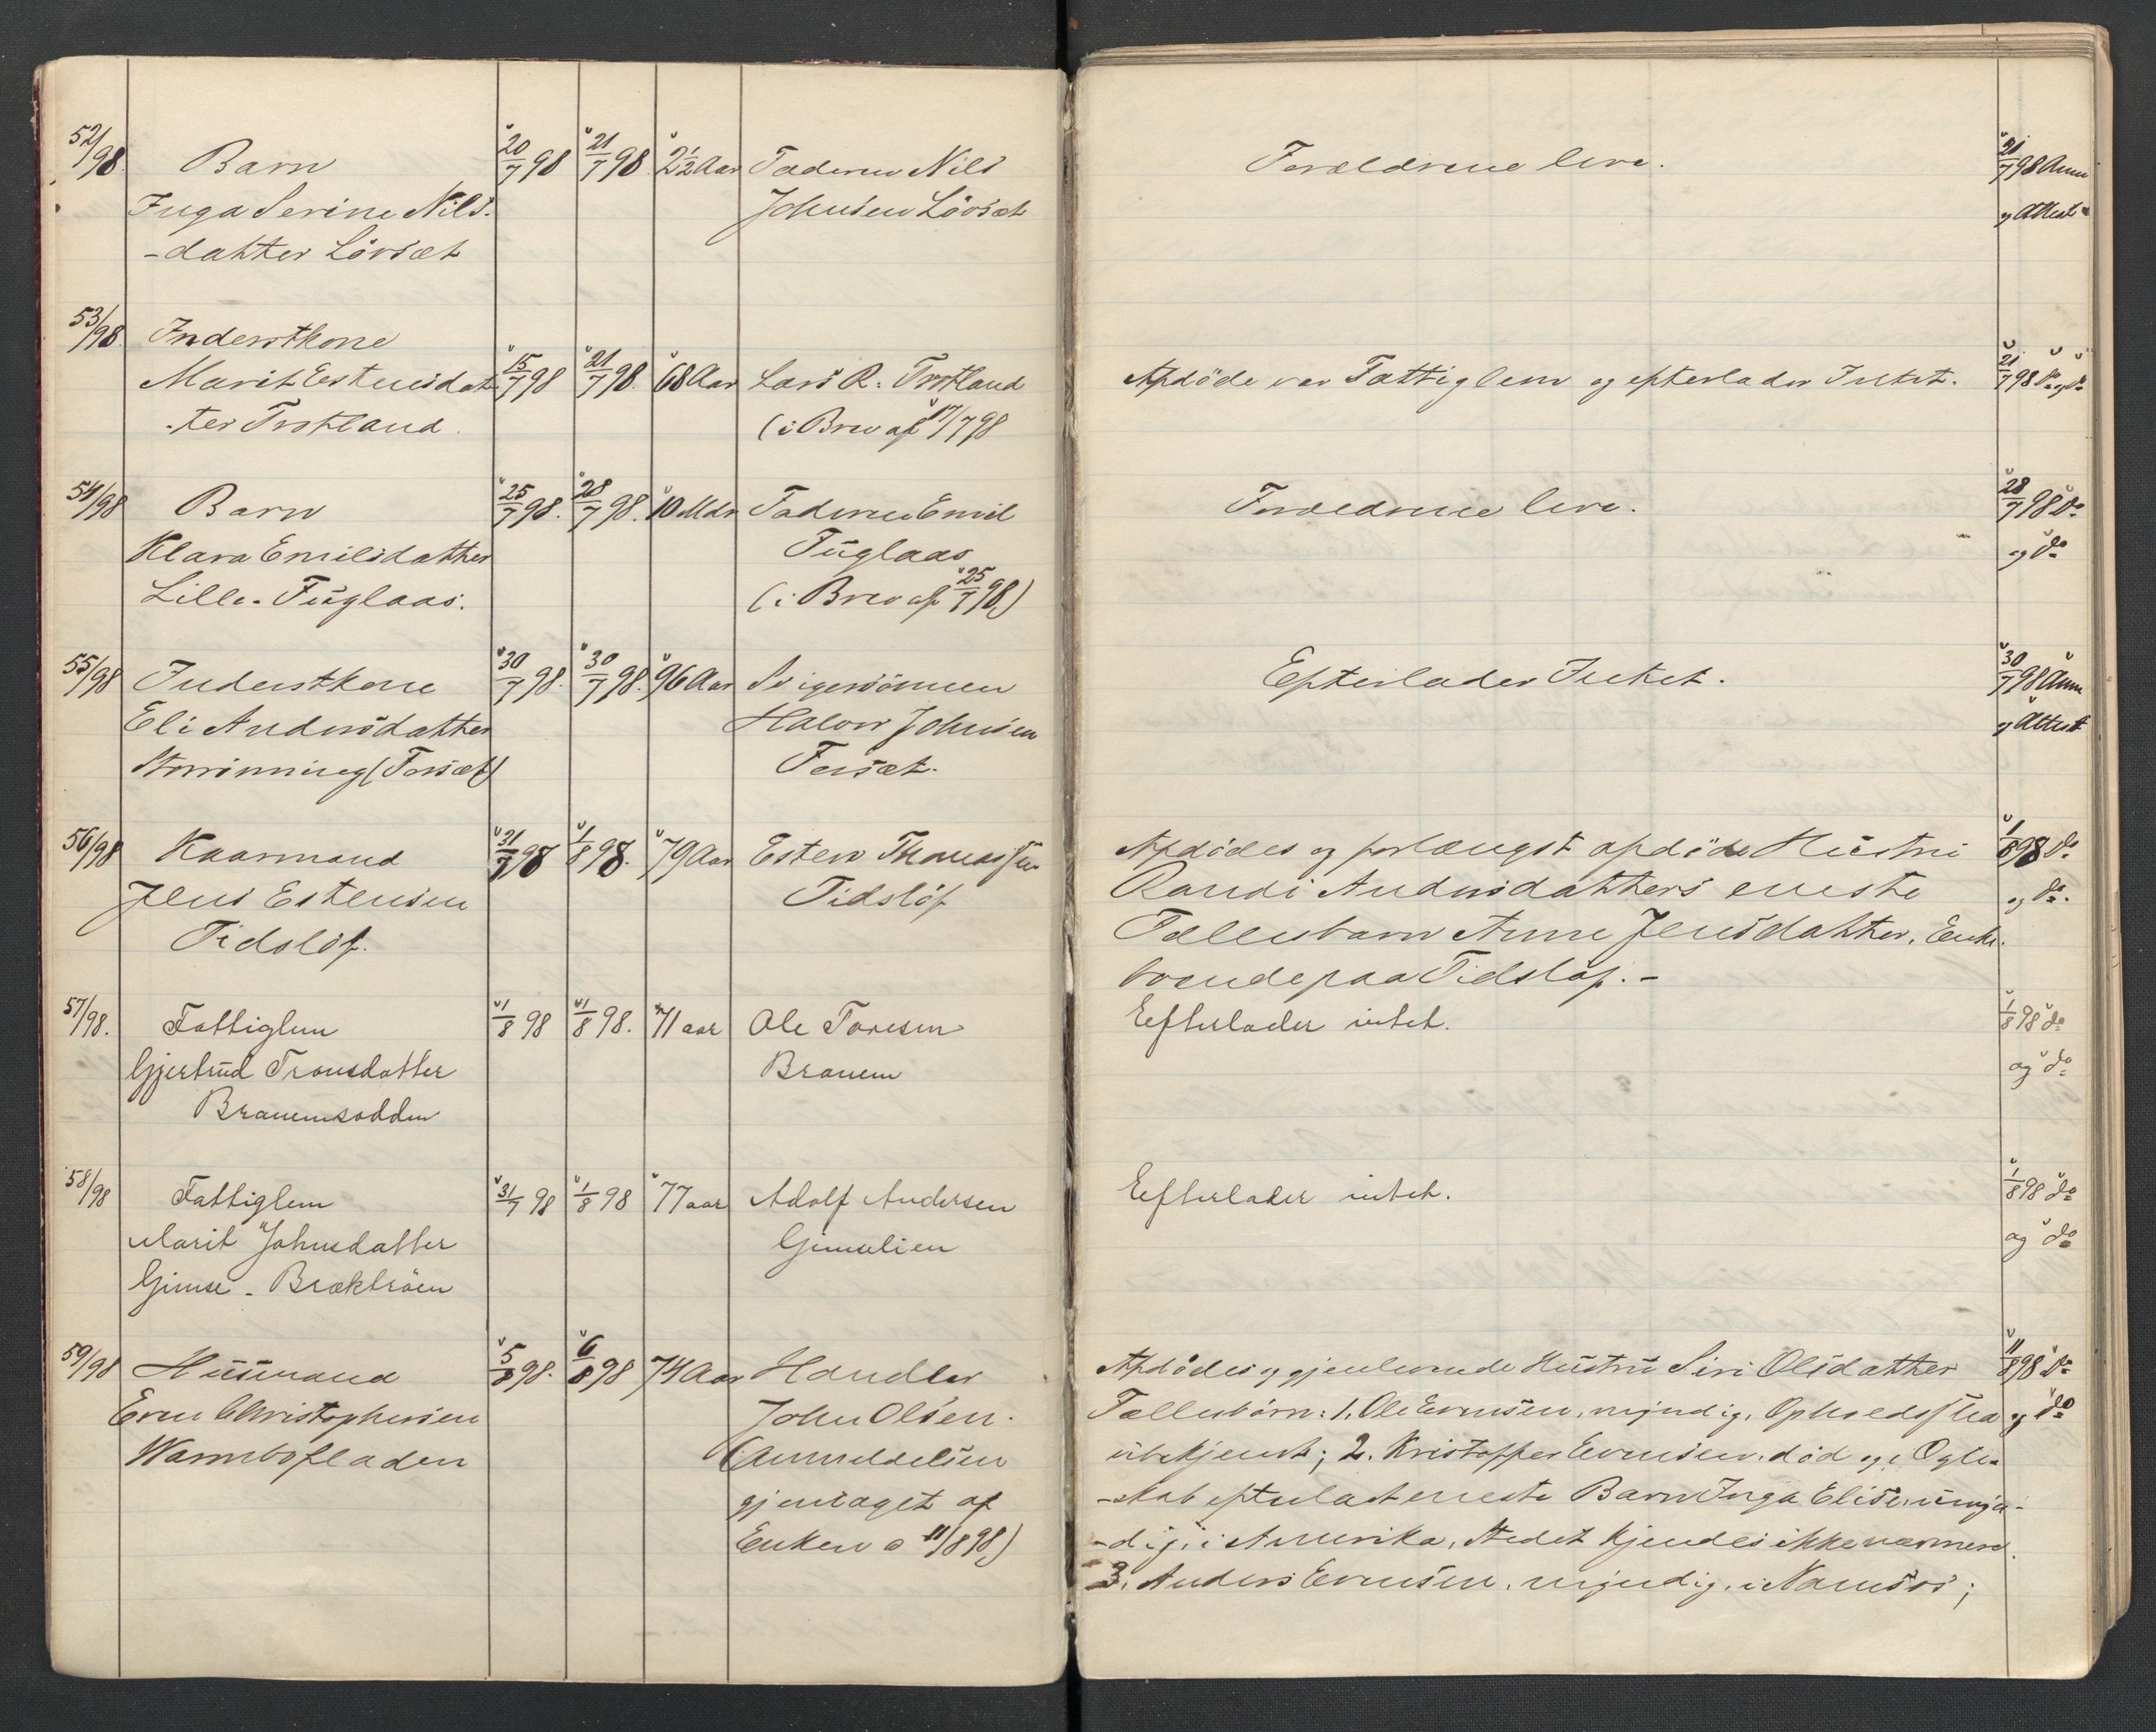 52/98 Barn 20/7 98 21/7 98 2½ Aar Faderen Nils Forældrene leve. 21/7 98 Anm
Inga Serine Nils- Johnsen Lövset og Attest
-datter Lövset
53/98 Inderstkone
Marit Estensdat- 15/7 98 21/7 98 68 Aar Lars R. Trotland Afdöde var Fattiglem og efterlader Intet. 21/7 98 do og do
-ter Trotland. (i Brev af 17/7 98
54/98 Barn 25/7 98. 28/7 98. 10 Mdr Faderen Emil Forældrene leve. 28/7 98 do
Klara Emilsdatter Fuglaas og do
Lille-Fuglaas. (i Brev af 25/7 98)
55/98 Inderstkone 30/7 98. 30/7 98. 96 Aar Svigersönnen Efterlader Intet. 30/7 98 Anm
Eli Andersdatter Halvor Johnsen og Attest
(Forset) Forset.
56/98 Kaarmand 31/7 98 1/8 98. 79 Aar Esten Thomassen Afdödes og forlængst afdöde Hustru 1/8 98 do
Jens Estensen Tidslöf Randi Andersdatters eneste og do.
Tidslöf. Fællesbarn Anne Jensdatter, Enke.
boende paa Tidsløf. -
57/98. Fattiglem 1/8 98 1/8 98. 71 aar Ole Toresen Eefterlader intet. 1/8 98 do
Gjertrud Tronsdatter Brauem og do
Brauemsodden
58/98 Fattiglem 31/7 98 1/8 98 77 aar Adolf Andersen Eefterlader intet. 1/8 98 do
Marit Johnsdatter Gimselien og do
Gimse - Bræktröen
59/98 Husmand 5/8 98. 6/8 98 74 Aar Handler Afdödes og gjenlevende Hustru Siri Olsdatter 11/8 98 do
Even Christophersen John Olsen. Fællesbörn: 1. Ole Evensen, myndig, Opholdssted og do
Warmbofladen (Anmeldelsen ubekjendt; 2. Kristoffer Evensen, död og i Ægte-
gjentaget af -skab efterladt eneste Barn Inga Elise, umyn-
Enken 11/8 98) -dig, i Amerika, Stedet kjendes ikke nærmere.
3. Anders Evensen, myndig, i Namsos;